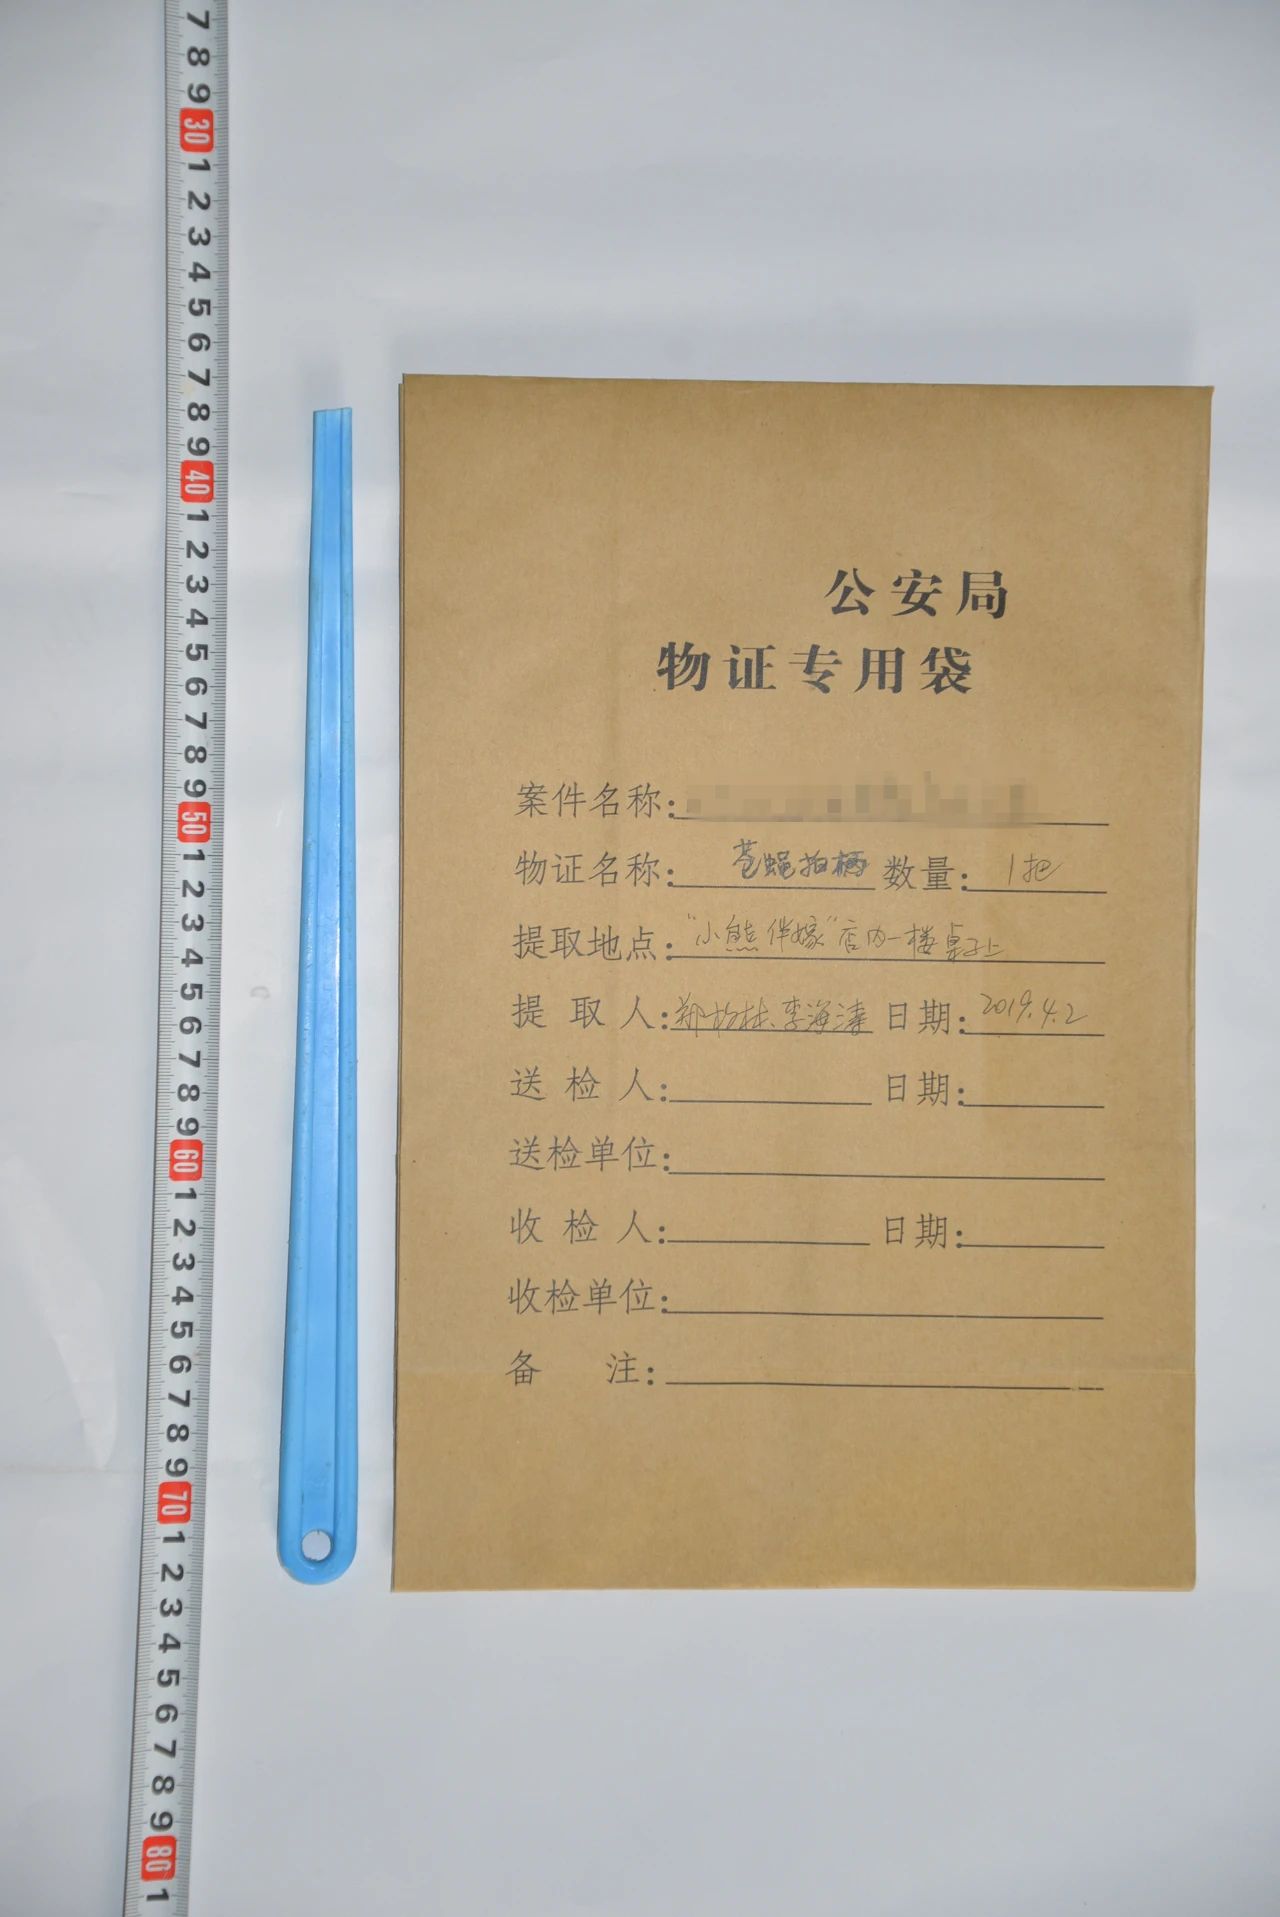 7
8
9
30
1
2
3
4
5
6
7
8
9
40
1
2
3
4
5
6
7
8
9
50
1
2
3
4
5
6
7
8
9
60
1
2
3
4
5
6
7
8
9
70
1
2
3
4
5
6
7
8
9
80
1
公安局
物证专用袋
案件名称:
物证名称: 苍蝇拍柄 数量: 1把
提取地点: "小熊伴嫁"店内一楼桌子上
提取人: 郑柏林、李海涛 日期: 2019.4.2
送检人: 日期:
送检单位:
收检人: 日期:
收检单位:
备注: